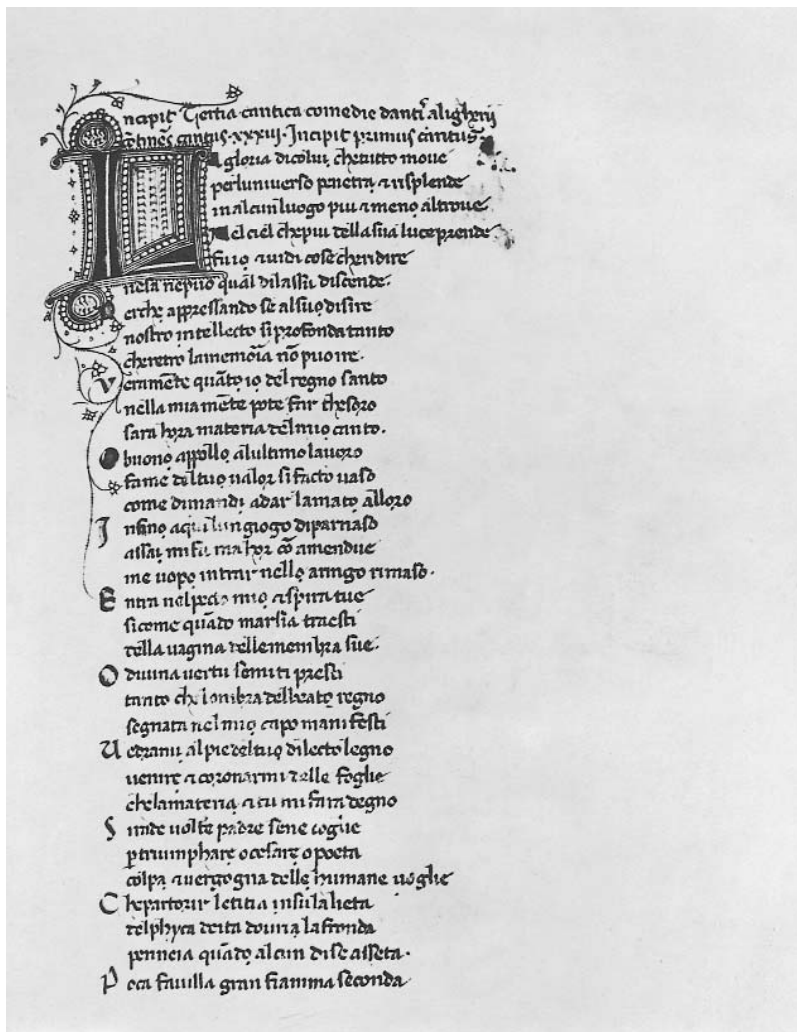 Incipit Tertia cantica comedie dantis aligherii
cantus xxxiij. Incipit primus cantus
La gloria dicolui chetutto move
perluniverso penetra ⁊ risplende
in alcun luogo piu ⁊ meno altrove
Nel ciel chepiu della sua luce prende
fu io ⁊ vidi cose cheridire
nesa nepuo qual dilassu discende.
Perche appressando se alsuo disire
nostro intellecto si profonda tanto
cheretro lamemoria nō puo ire.
Veramēte quāto io del regno santo
nella mia mēte pote far thesoro
sara hora materia delmio canto.
O buono appollo alultimo lavoro
fame deltuo valor si facto vaso
come dimandi adar lamato alloro
Insino aqui lun giogo diparnaso
assai mi fu ma hor cō amendue
me uopo intrar nello aringo rimaso.
Entra nelpecto mio ⁊ spira tue
sicome quādo marsia traesti
della vagina dellemembra sue.
O divina vertu semiti presti
tanto che lombra delbeato regno
segnata nel mio capo manifesti
Vedrami alpie deltuo dilecto legno
venire ⁊ coronarmi delle foglie
chelamateria ⁊ tu mi fara degno
Si rade volte padre sene coglie
ꝑ triumphare o cesare o poeta
colpa ⁊ vergogna delle humane voglie
Chepartorir letitia insulalieta
delphyca deita dovria lafronda
penneia quādo alcun dise asseta.
Poca favilla gran fiamma seconda